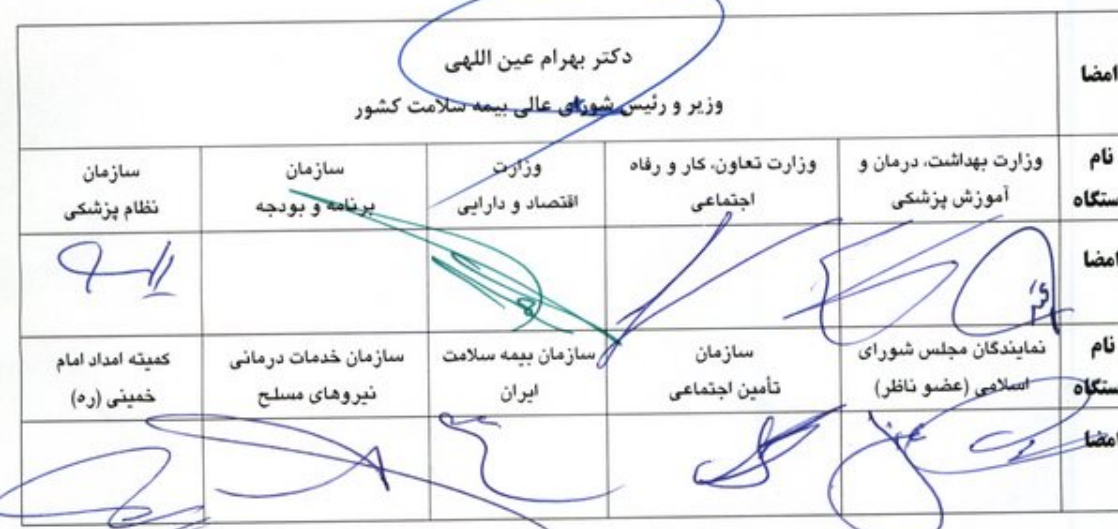 امضا
دکتر بهرام عین اللهی
وزیر و رئیس شورای عالی بیمه سلامت کشور
نام
ستگاه
وزارت بهداشت، درمان و
آموزش پزشکی
وزارت تعاون، کار و رفاه
اجتماعی
وزارت
اقتصاد و دارایی
سازمان
برنامه و بودجه
سازمان
نظام پزشکی
امضا
نام
ستگاه
نمایندگان مجلس شورای
اسلامی (عضو ناظر)
سازمان
تأمین اجتماعی
سازمان بیمه سلامت
ایران
سازمان خدمات درمانی
نیروهای مسلح
کمیته امداد امام
خمینی (ره)
امضا